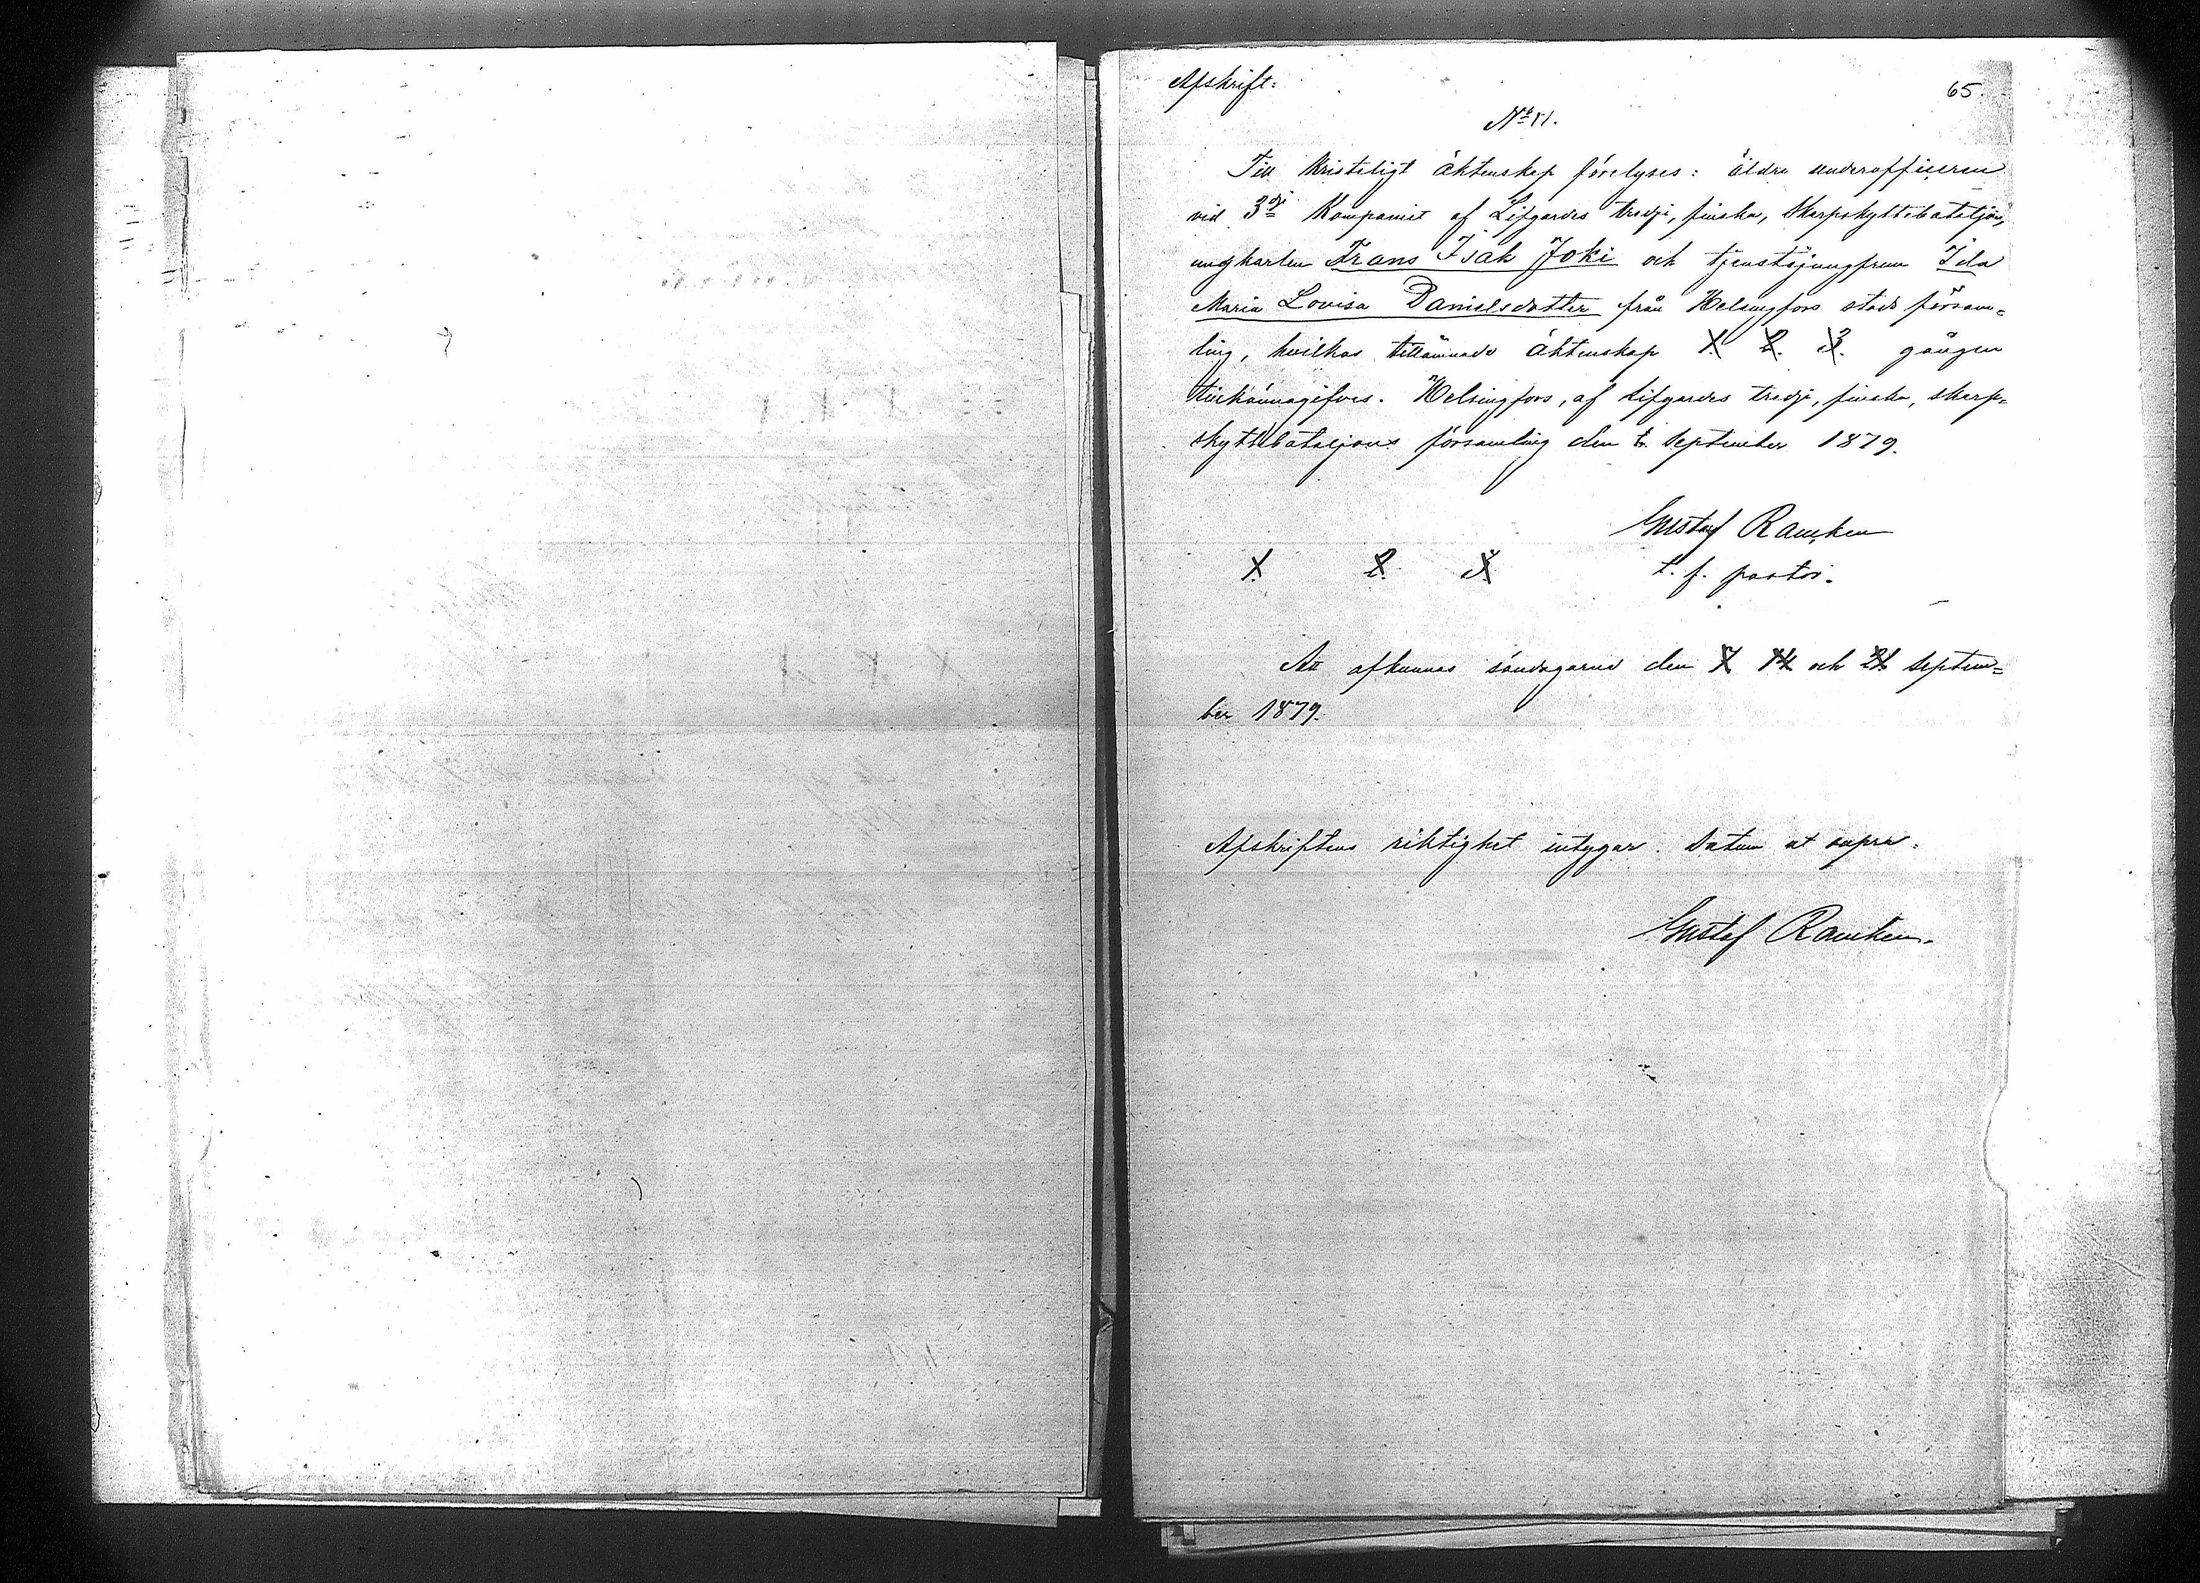 Afskrift:
65.
N:o 11.
Till kristeligt äktenskap förelyses: äldre underofficeren
vid 3dje Kompaniet af Lifgardes tredje, finska, Skarpskyttebataljon,
ungkarlen Frans Isak Joki och tjenstejungfrun Ida
Maria Lovisa Danielsdotter från Helsingfors stads försam=
ling, hvilkas tillämnade äktenskap 1. 2. 3. gången
tillkännagifves. Helsingfors, af Lifgardes tredje, finska, skarp=
skyttebataljons församling den 6 September 1879.
Gustaf Rancken
t. f. pastor.
1. 2. 3.
Att afkunnas söndagarna den 7 14 och 21 Septem=
ber 1879.
Afskriftens riktighet intygar. Datum ut supra.
Gustaf Rancken.